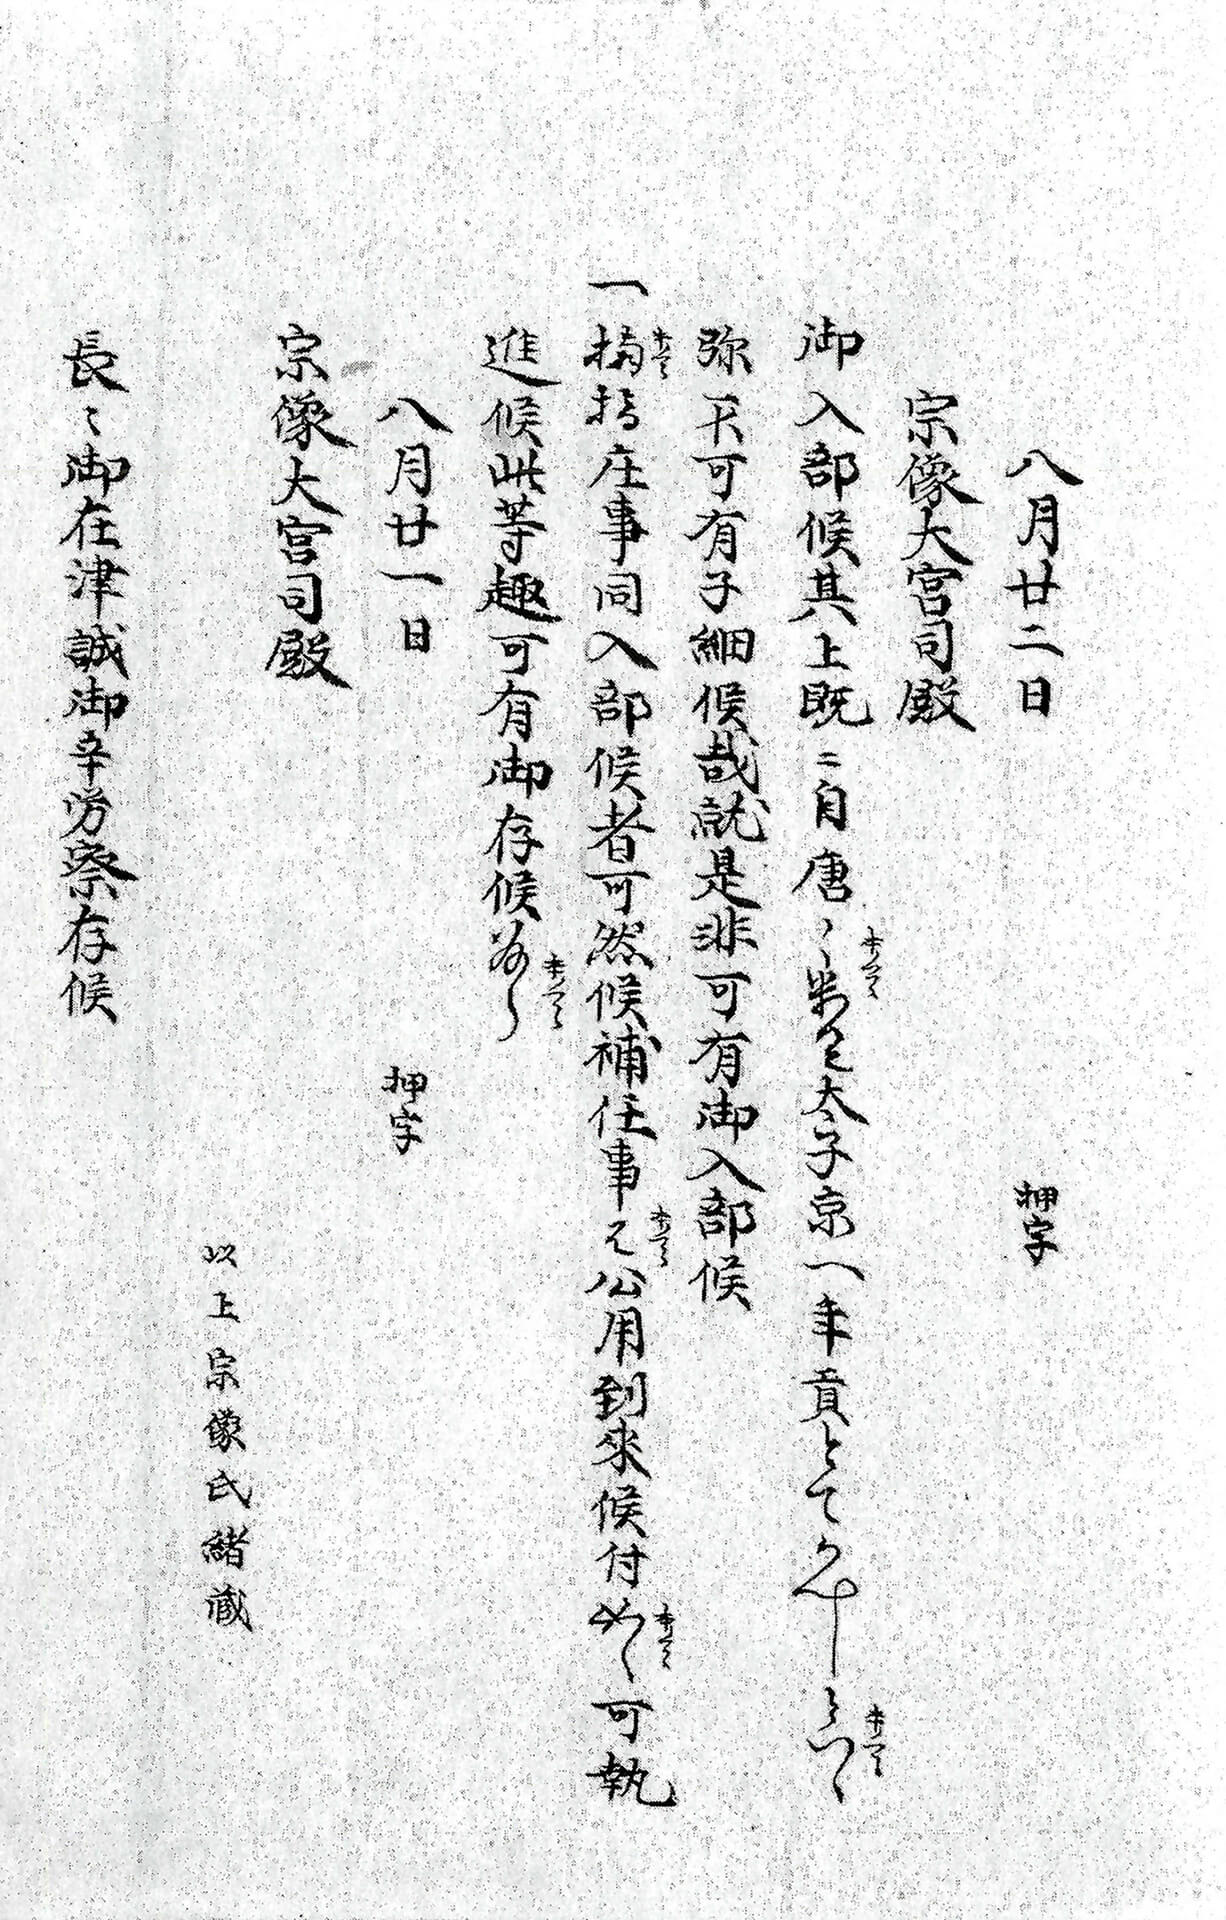 八月廿二日　押字
宗像大宮司殿
御入部候其上既ニ自唐太子京へ年貢とて
弥不可有子細候哉就是非可有御入部候
一楠橋庄事同入部候者可然候補任事公用到来候付可執
進候此等趣可有御存候
八月廿一日　押字
宗像大宮司殿
以上宗像氏緒蔵
長〻御在津誠御辛労察存候